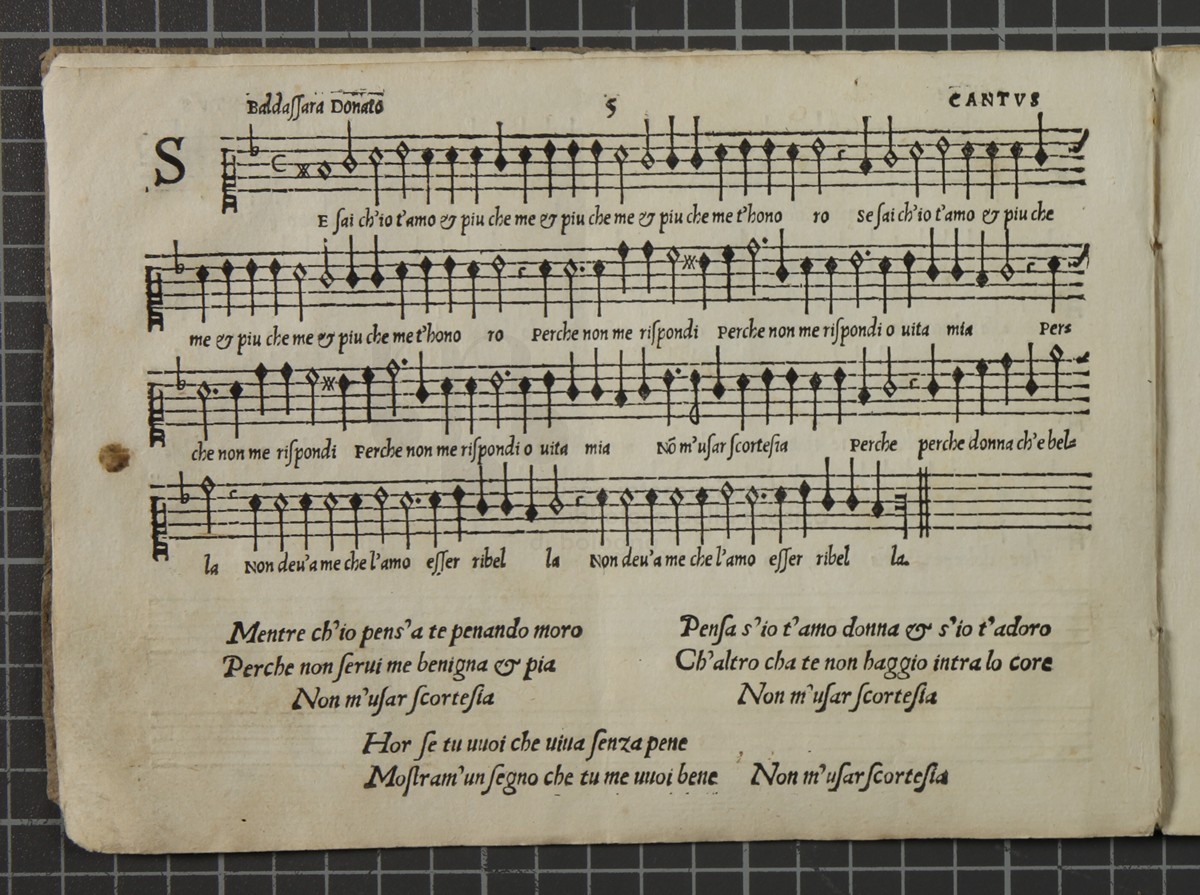 Baldaſſara Donato 5 CANTVS
S
E ſai ch'io t'amo & piu che me & piu che me & piu che me t'hono ro Se ſai ch'io t'amo & piu che
me & piu che me & piu che me t'hono ro Perche non me riſpondi Perche non me riſpondi o uita mia Pers
che non me riſpondi Perche non me riſpondi o uita mia Nō m'uſar ſcorteſia Perche perche donna ch'e bel=
la Non deu'a me che l'amo eſſer ribel la Non deu'a me che l'amo eſſer ribel la.
Mentre ch'io pens'a te penando moro
Perche non ſerui me benigna & pia
Non m'uſar ſcorteſia
Penſa s'io t'amo donna & s'io t'adoro
Ch'altro cha te non haggio intra lo core
Non m'uſar ſcorteſia
Hor ſe tu uuoi che uiua ſenza pene
Moſtram'un ſegno che tu me uuoi bene Non m'uſar ſcorteſia